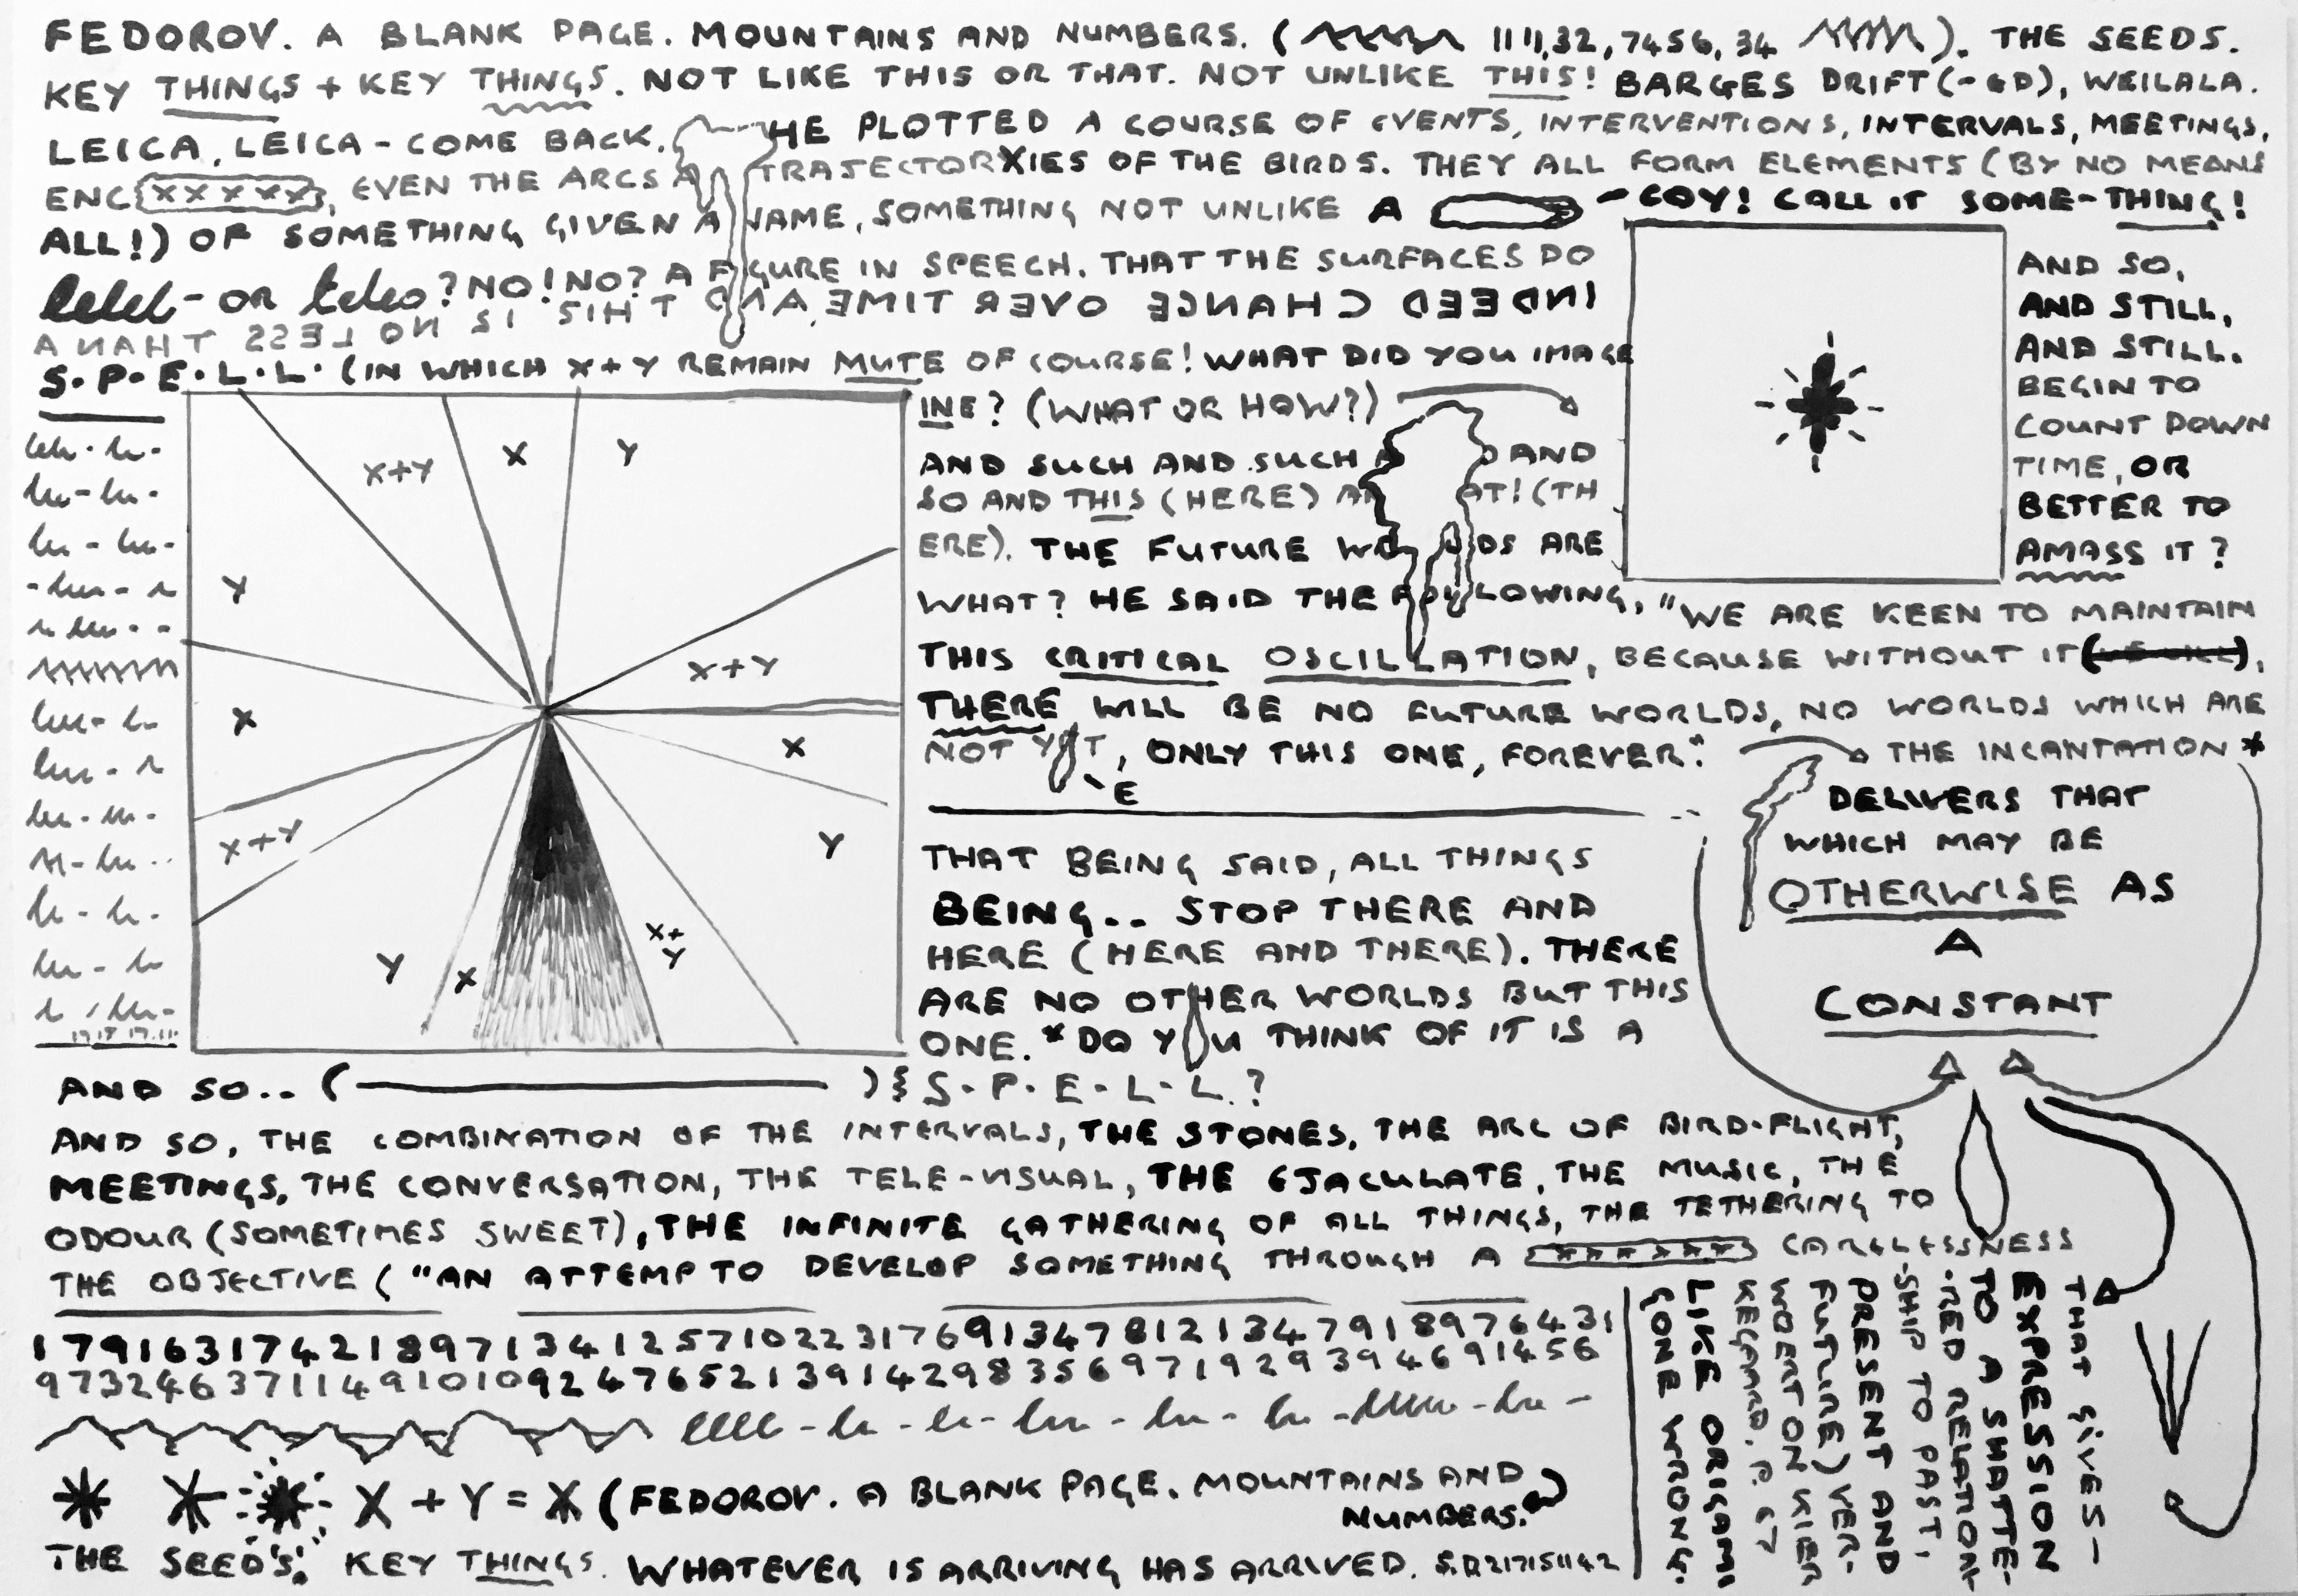 FEDOROV. A BLANK PAGE. MOUNTAINS AND NUMBERS. ( 1111,32,7456,34 ). THE SEEDS.
KEY THINGS + KEY THINGS. NOT LIKE THIS OR THAT. NOT UNLIKE THIS! BARGES DRIFT(-ED), WEILALA.
LEICA, LEICA - COME BACK. HE PLOTTED A COURSE OF EVENTS, INTERVENTIONS, INTERVALS, MEETINGS,
ENC{XXXXX}, EVEN THE ARCS TRAJECTORXIES OF THE BIRDS. THEY ALL FORM ELEMENTS (BY NO MEANS
ALL!) OF SOMETHING GIVEN A NAME, SOMETHING NOT UNLIKE A - COY! CALL IT SOME-THING!
- OR ? NO! NO? A FIGURE IN SPEECH. THAT THE SURFACES DO
INDEED CHANGE OVER TIME, AND THIS IS NO LESS THAN A
S.P.E.L.L. (IN WHICH X+Y REMAIN MUTE OF COURSE! WHAT DID YOU IMAGE
INE? (WHAT OR HOW?)
AND SUCH AND SUCH AND
SO AND THIS (HERE) AT! (TH
ERE). THE FUTURE ARE
WHAT? HE SAID THE FOLLOWING, "WE ARE KEEN TO MAINTAIN
THIS CRITICAL OSCILLATION, BECAUSE WITHOUT IT ,
THERE WILL BE NO FUTURE WORLDS, NO WORLDS WHICH ARE
NOT YET, ONLY THIS ONE, FOREVER."
E
AND SO,
AND STILL,
AND STILL.
BEGIN TO
COUNT DOWN
TIME, OR
BETTER TO
AMASS IT?
X+Y
X
Y
Y
X+Y
X
X
X+Y
Y
Y
X
X+
Y
THE INCANTATION *
DELIVERS THAT
WHICH MAY BE
OTHERWISE AS
A
CONSTANT
THAT BEING SAID, ALL THINGS
BEING.. STOP THERE AND
HERE (HERE AND THERE). THERE
ARE NO OTHER WORLDS BUT THIS
ONE. * DO YOU THINK OF IT IS A
S-P-E-L-L.?
AND SO.. ( )
AND SO, THE COMBINATION OF THE INTERVALS, THE STONES, THE ARC OF BIRD-FLIGHT,
MEETINGS, THE CONVERSATION, THE TELE-VISUAL, THE EJACULATE, THE MUSIC, THE
ODOUR (SOMETIMES SWEET), THE INFINITE GATHERING OF ALL THINGS, THE TETHERING TO
THE OBJECTIVE ("AN ATTEMPT TO DEVELOP SOMETHING THROUGH A CARELESSNESS
THAT GIVES-
EXPRESSION
TO A SHATTE-
-RED RELATION-
-SHIP TO PAST,
PRESENT AND
FUTURE) VER-
WOERT ON KIER
KEGAARD. P. 67
LIKE ORIGAMI
GONE WRONG.
17916317421897134125710223176913478121347918976431
9732463711491010924765213914298356971929394691456
X + Y = X (FEDOROV. A BLANK PAGE. MOUNTAINS AND
NUMBERS.)
THE SEEDS. KEY THINGS. WHATEVER IS ARRIVING HAS ARRIVED.